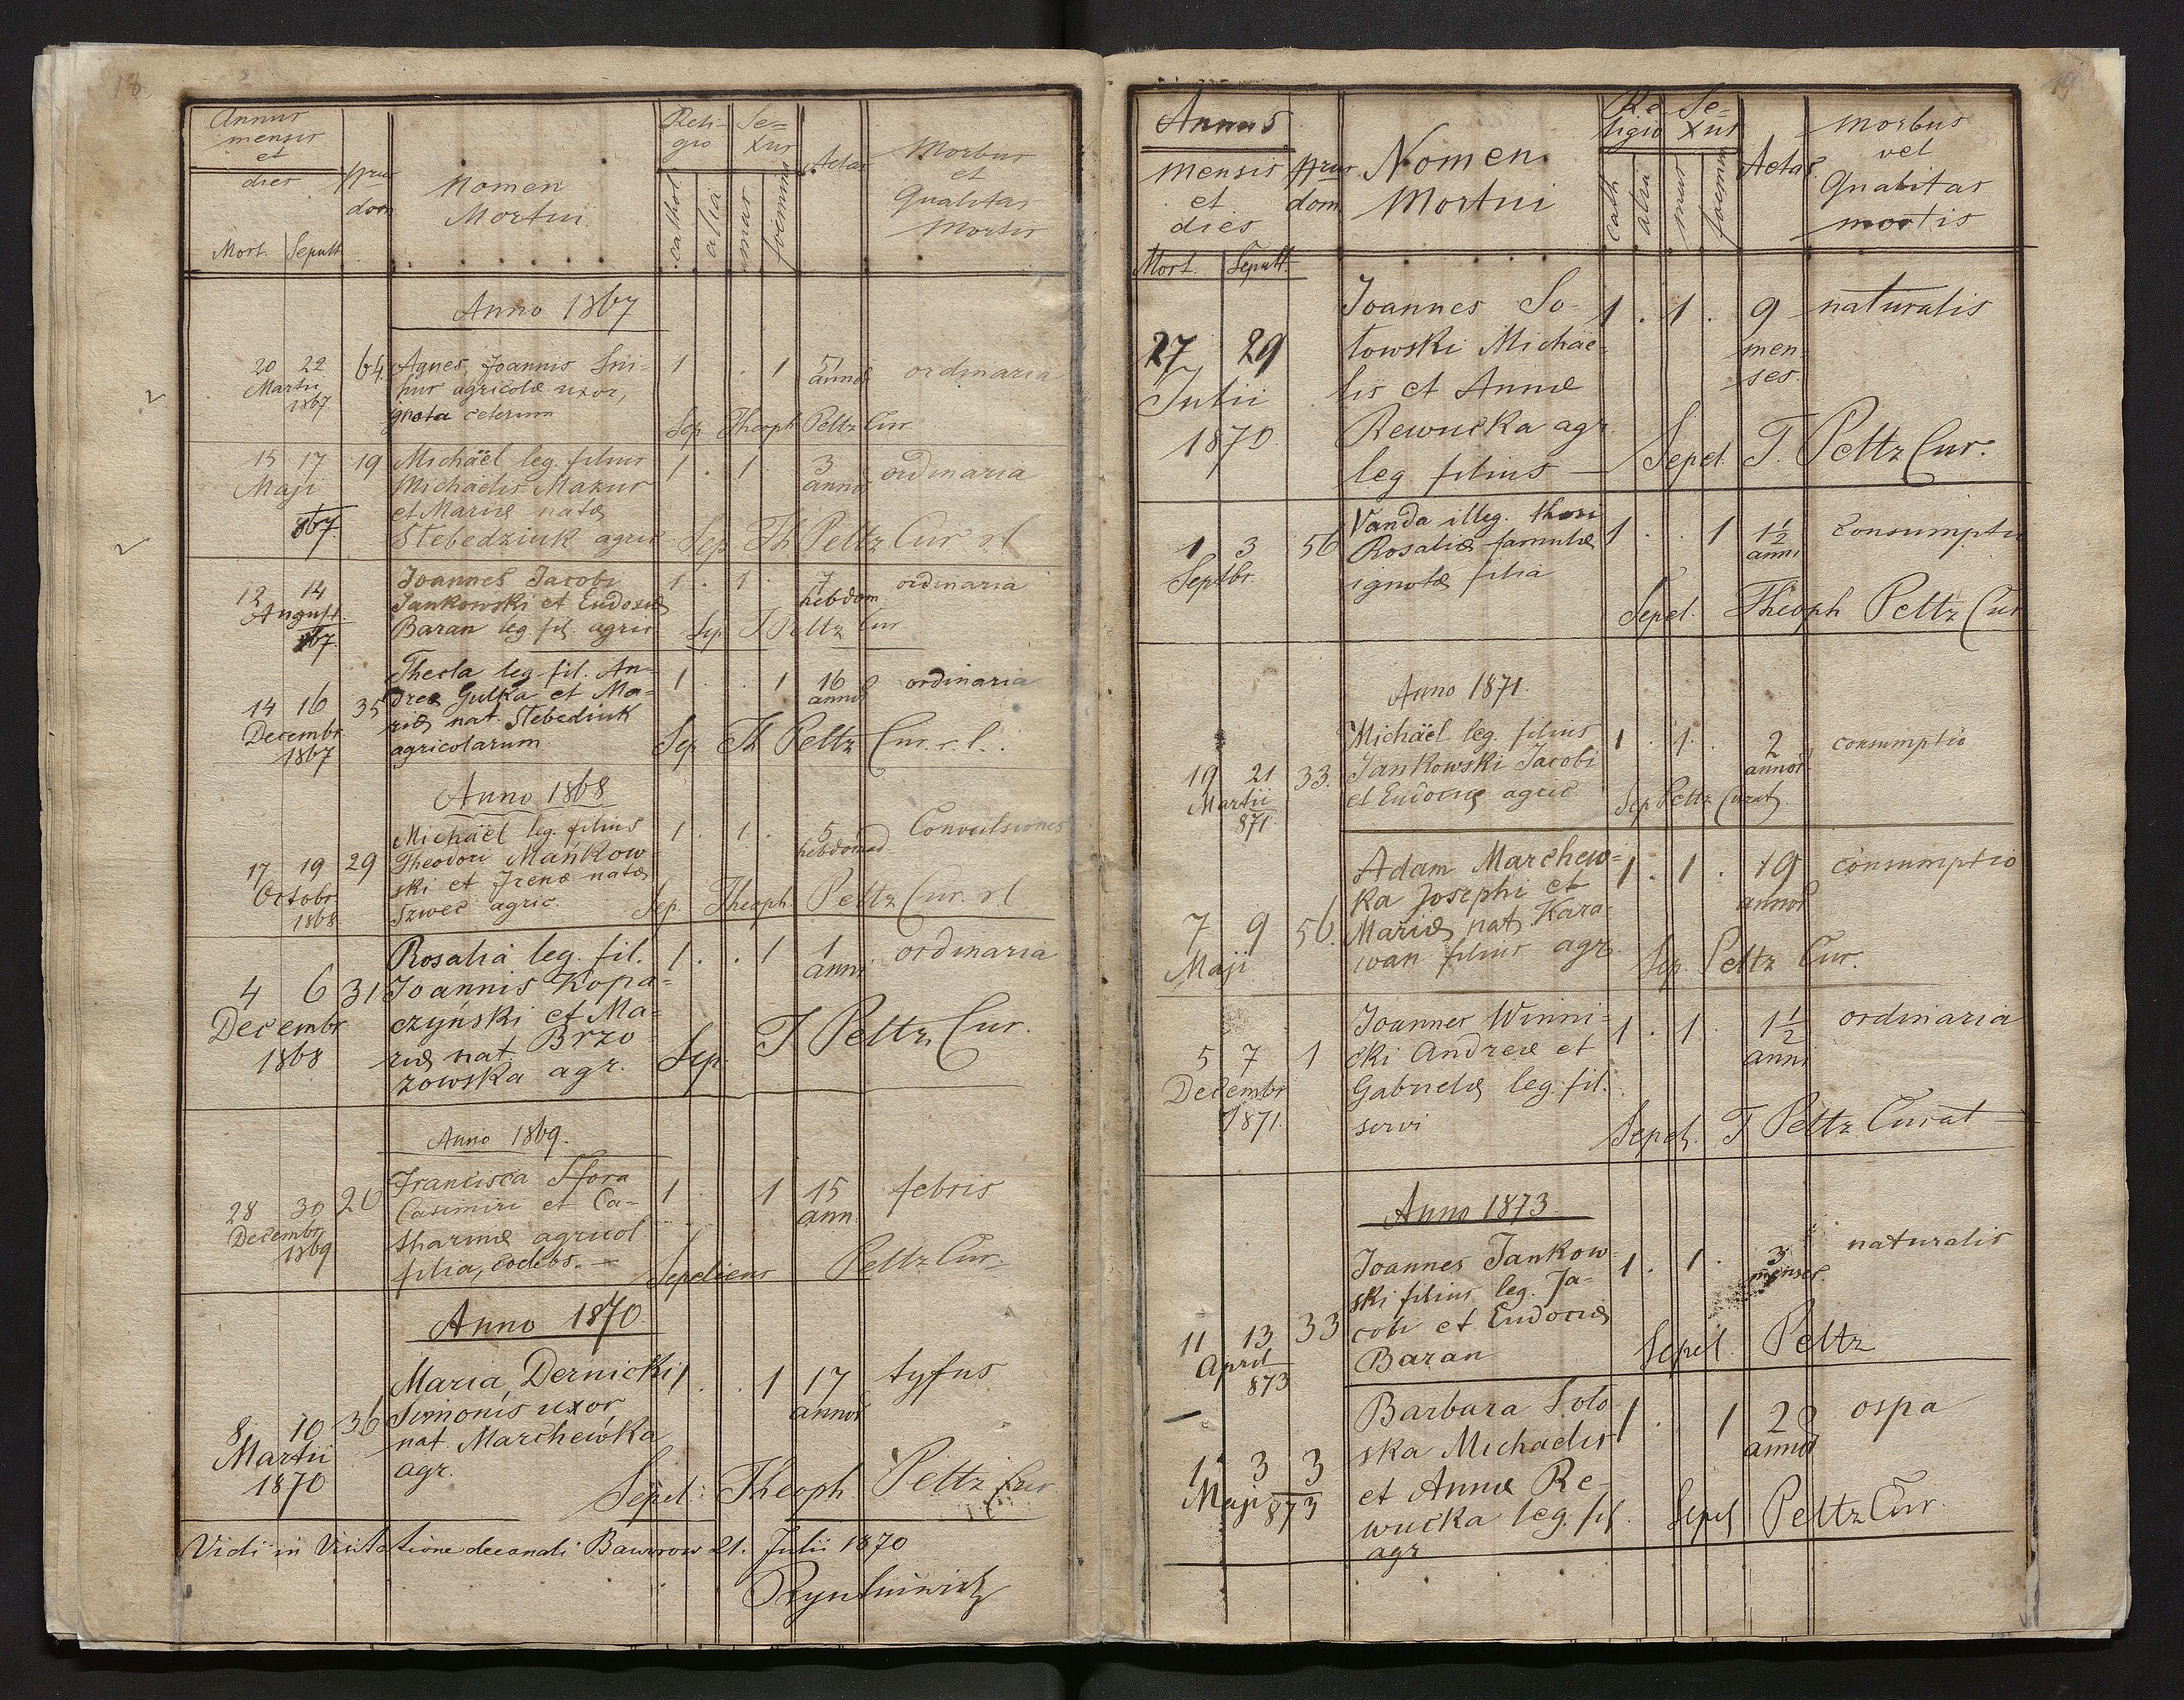 18
Annus mensis et dies
Nrus dom.
Nomen Mortui
Religio
Sexus
Aetas
Morbus et Qualitas Mortis
Mort. Sepult.
cathol. alia mas foemina
Anno 1867
20 22 64 Agnes, Joannis Sni- 1 . . 1 51 ordinaria
Martii hur agricolæ uxor, annor
1867 ignota ceterum Sep Theoph Peltz Cur
15 17 19 Michäel leg. filius 1 . 1 . 3 ordinaria
Maji Michäelis Mazur annor
867. et Mariæ natæ
Stebedziuk agric Sep. Th Peltz Cur rl
12 14 Joannes Jacobi 1 . 1 . 7 ordinaria
August. Jankowski et Eudoxiæ hebdom
867. Baran leg fil. agric Sep T Peltz Cur
Thecla leg fil. An- 1 . . 1 16 ordinaria
14 16 35 dreæ Gulka et Ma- annor
Decembr riæ nat. Stebediuk
1867 agricolarum Sep Th Peltz Cur. r. l.
Anno 1868
Michäel leg. filius 1 . 1 . 5 Convulsiones
17 19 29 Theodori Mańkow- hebdomad
Octobr ski et Irenæ natæ
1868 Szwec agric. Sep. Theoph. Peltz Cur. rl
Rosalia leg. fil. 1 . . 1 1 ordinaria
4 6 31 Joannis Kopa- anni
Decembr czyński et Ma-
1868 riæ nat. Brzo-
zowska agr. Sep. T Peltz Cur.
Anno 1869.
Francisca Sfora 1 . 1 15 febris
28 30 20 Casimiri et Ca- ann.
Decembr tharinæ agricol
1869 filia, coelebs. Sepeliens Peltz Cur.
Anno 1870.
Maria Dernicki 1 . . 1 17 tyfus
8 10 36 Simonis uxor annor
Martii nat. Marchewka
1870 agr. Sepel: Theoph Peltz Cur
Vidi in Visitatione decanali Baworow 21. Julii 1870
19
Annus mensis et dies
Nrus dom.
Nomen Mortui
Religio
Sexus
Aetas
morbus vel Qualitas mortis
Mort. Sepult.
cath. alia mas foemin
Joannes So- 1 . 1 . 9 naturalis
27 29 towski Michäe- men-
Julii lis et Annæ ses.
1870. Rewucka agr
leg. filius Sepel. T. Peltz Cur.
Vanda illeg. thori 1 . . 1 1½ consumptio
1 3 56 Rosaliæ famulæ anni
Septbr. ignotæ filia
Sepel. Theoph Peltz Cur
Anno 1871.
Michäel leg. filius 1 . 1 . 2 consumptio
19 21 33. Jankowski Jacobi annor
Martii et Eudociæ agric. Sep Peltz Curat
871.
Adam Marchew- 1 . 1 . 19 consumptio
ka Josephi et annor
7 9 56. Mariæ nat. Kara-
Maji wan filius agr. Sep. Peltz Cur.
Joannes Winni- 1 . 1 . 1½ ordinaria
5 7 1 cki Andreæ et anni
Decembr Gabrielæ leg. fil.
1871. servi Sepel. T Peltz Curat
Anno 1873.
Joannes Jankow- 1 . 1 . 3 naturalis
ski filius leg. Ja- menses.
11 13 33 cobi et Eudociæ
April Baran Sepel. Peltz
873
Barbara Soło- 1 . 1 2 ospa
ska Michaelis annor
1 3 3 et Annæ Re-
Maji 873 wucka leg. fil. Sepel Peltz Cur.
agr